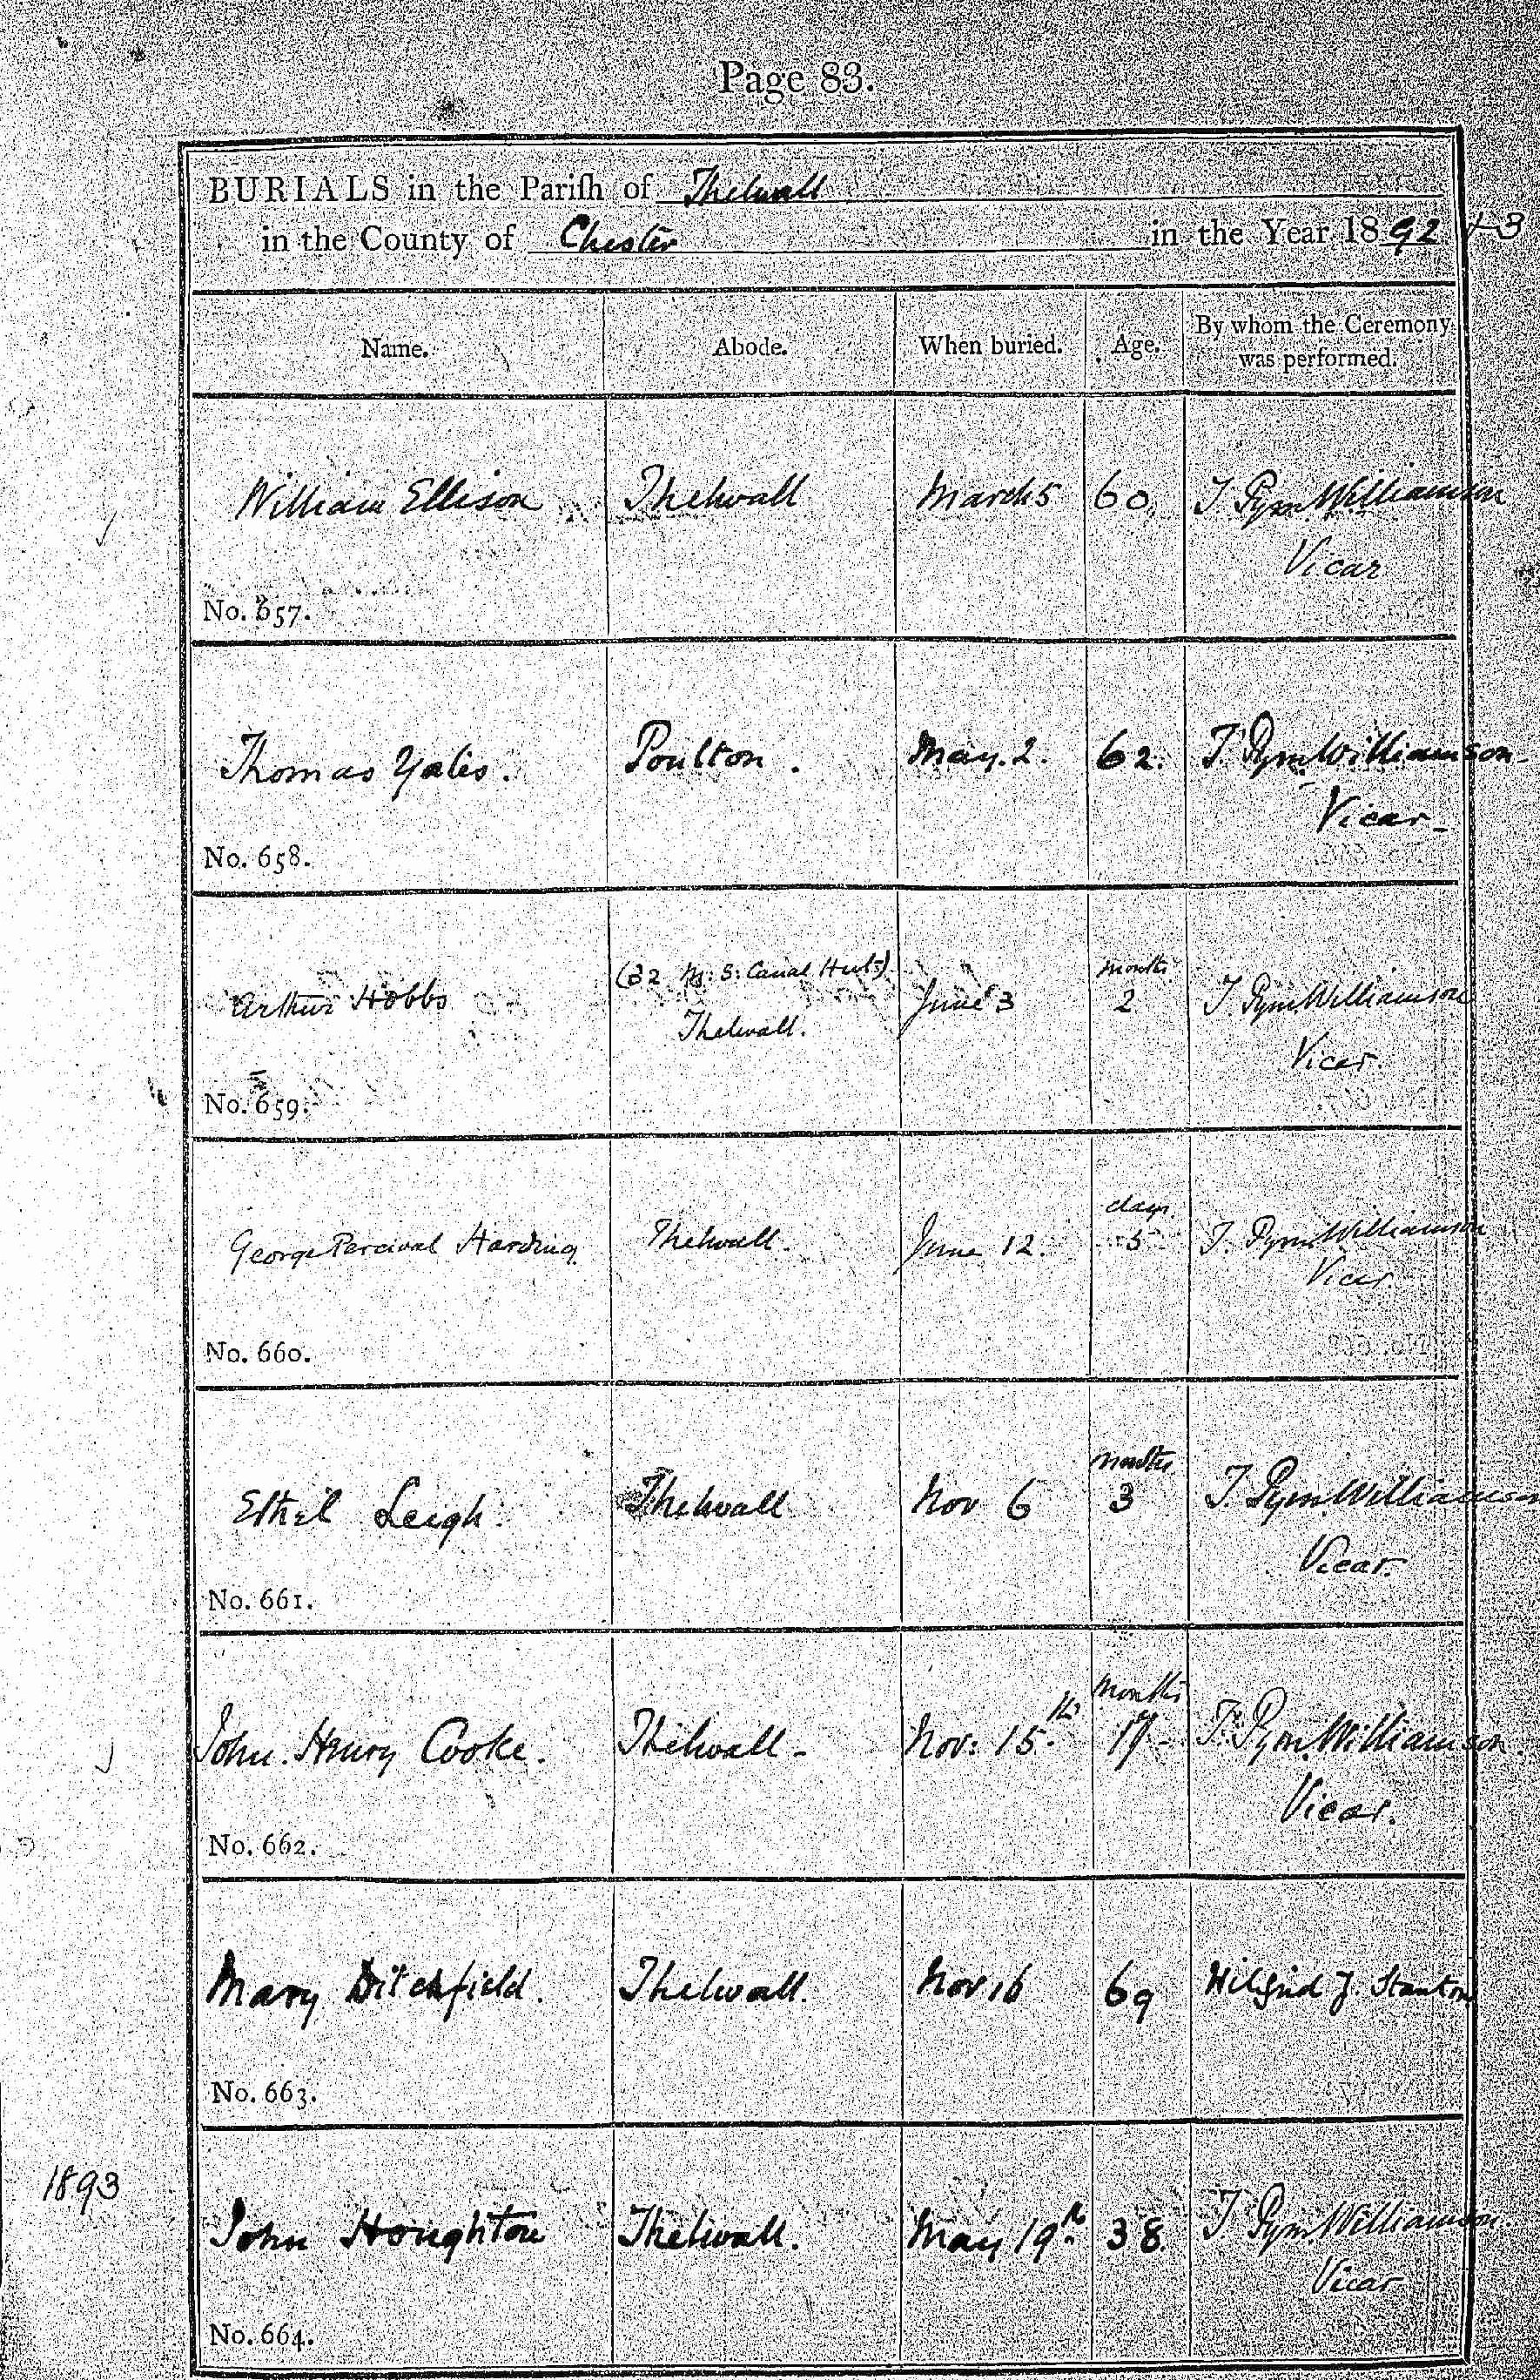 Page 83.
BURIALS in the Pariſh of Thelwall
in the County of Chester in the Year 1892 + 3
Name. Abode. When buried. Age. By whom the Ceremony was performed.
William Ellison Thelwall March 5 60 T Pym Williamson
Vicar
No. 657.
Thomas Yates. Poulton. May. 2. 62. T. Pym Williamson
Vicar
No. 658.
(32 M: S: Canal Huts) months
Arthur Hobbs June 3 2 T Pym Williamson
Thelwall.
Vicar.
No. 659.
days
George Percival Harding Thelwall. June 12. 5 T. Pym Williamson
Vicar.
No. 660.
months
Ethel Leigh. Thelwall Nov 6 3 T. Pym Williamson
Vicar.
No. 661.
months
John. Henry Cooke. Thelwall - Nov: 15th. 17 - T. Pym Williamson.
Vicar.
No. 662.
Mary Ditchfield. Thelwall. Nov 16 69 Wilfrid J. Stanton
No. 663.
1893
John Houghton Thelwall. May 19th. 38. T Pym Williamson.
Vicar
No. 664.